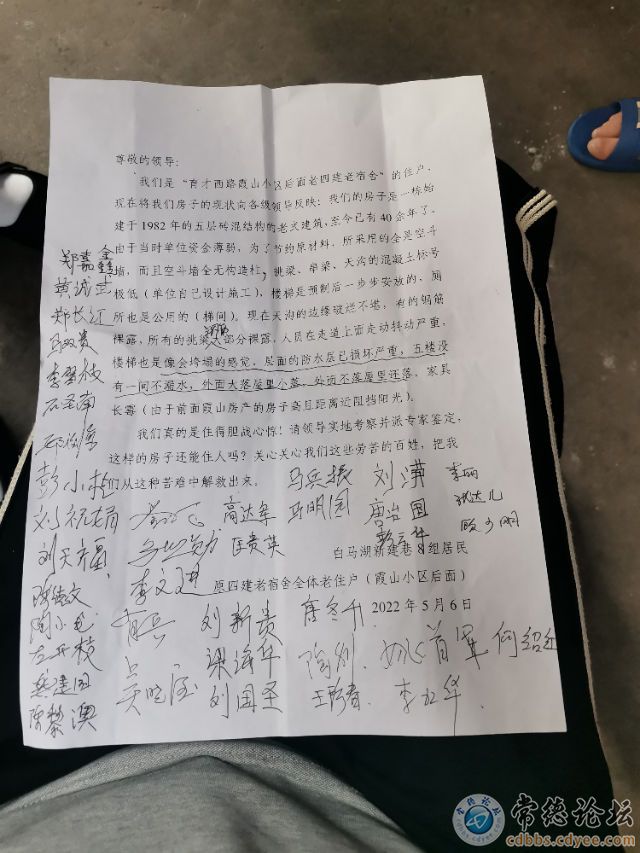 尊敬的领导:
我们是“育才西路霞山小区后面老四建老宿舍”的住户,
现在将我们房子的现状向各级领导反映:我们的房子是一栋始
建于1982年的五层砖混结构的老式建筑,至今已有40余年了。
由于当时单位资金薄弱,为了节约原材料,所采用的全是空斗
墙,而且空斗墙全无构造柱,挑梁、牵梁、天沟的混凝土标号
极低(单位自己设计施工),楼梯是预制后一步步安放的,厕
所也是公用的(梯间)。现在天沟的边缘破烂不堪,有的钢筋
裸露,所有的挑梁大部分裸露,人员在走道上面走动抖动严重,
楼梯也是像会垮塌的感觉,层面的防水层已损坏严重,五楼没
有一间不漏水,外面大落屋里小落,外面不落屋里还落,家具
长霉(由于前面霞山房产的房子高且距离近阻挡阳光)。
我们真的是住得胆战心惊!请领导实地考察并派专家鉴定,
这样的房子还能住人吗?关心关心我们这些劳苦的百姓,把我
们从这种苦难中解救出来。
郑嘉鑫
郑长江
彭小桂
刘祝娟
刘天福
陶小毛
高达军
匡贵英
马兵振
马明园
唐治国
李丽
白马湖新建巷8组居民
李文进
原四建老宿舍全体老住户(霞山小区后面)
2022年5月6日
刘新贵
唐冬千
梁海华
姚首军
何绍红
刘国圣
李红华
常德论坛
cdbbs.cdyee.com